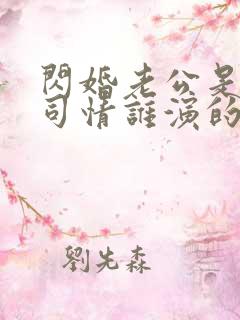 閃婚老公是
司情誰演的
劉先森